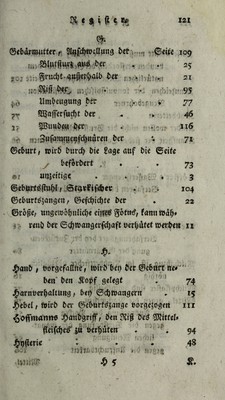 Register 121
G.
Gebärmutter, Anschwellung der Seite 109
Blutfluß aus der - 25
Frucht außerhalb der - 21
Riß der - - 95
Umbeugung der - 77
Wassersucht der - 46
Wunden der - - 116
Zusammenschnüren der - 71
Geburt, wird durch die Lage auf die Seite
befördert - - 73
unzeitige - - 3
Geburtsstuhl, Starkischer - 104
Geburtszangen, Geschichte der - 22
Größe, ungewöhnliche eines Fötus, kann wäh-
rend der Schwangerschaft verhütet werden 11
H.
Hand, vorgefallne, wird bey der Geburt ne-
ben den Kopf gelegt - 74
Harnverhaltung, bey Schwangern 15
Hebel, wird der Geburtszange vorgezogen 111
Hoffmanns Handgriff, den Riß des Mittel-
fleisches zu verhüten - 94
Hysterie - - 48
H 5 K.